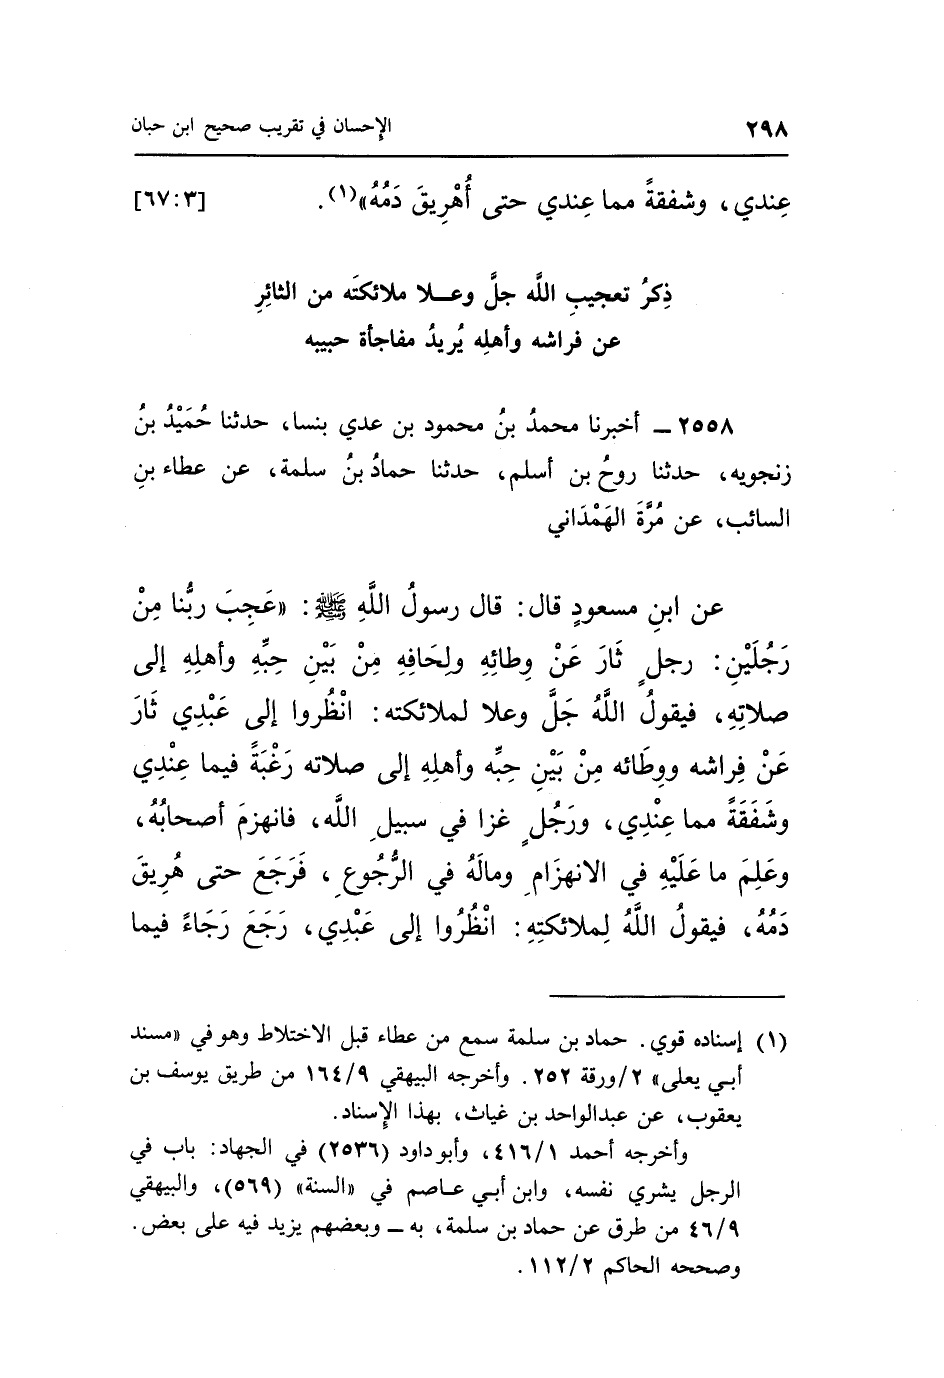 ٢٩٨ الإحسان في تقريب صحيح ابن حبان
عِندي، وشفقةً مما عِندي حتى أُهْرِيقَ دَمُهُ»(١). [٦٧:٣]
ذِكرُ تعجيبِ اللَّه جلَّ وعـلا ملائكتَه من الثائِرِ
عن فراشه وأهلِه يُريدُ مفاجأة حبيبه
٢٥٥٨ ـ أخبرنا محمدُ بنُ محمود بن عدي بنسا، حدثنا حُمَيْدُ بنُ
زنجويه، حدثنا روحُ بن أسلم، حدثنا حمادُ بنُ سلمة، عن عطاء بنِ
السائب، عن مُرَّةَ الهَمْدَاني
عن ابنِ مسعودٍ قال: قال رسولُ اللَّهِ ﷺ: «عَجِبَ ربُّنا مِنْ
رَجُلَيْنِ: رجلٍ ثَارَ عَنْ وِطائِهِ ولِحَافِهِ مِنْ بَيْنِ حِبِّهِ وأهلِهِ إلى
صلاتِهِ، فيقولُ اللَّهُ جَلَّ وعلا لملائكته: انْظُروا إلى عَبْدِي ثَارَ
عَنْ فِراشه ووِطَائه مِنْ بَيْنِ حِبِّه وأهلِهِ إلى صلاته رَغْبَةً فيما عِنْدِي
وشَفَقَةً مما عِنْدِي، ورَجُلٍ غزا في سبيلِ الله، فانهزمَ أصحابُهُ،
وعَلِمَ ما عَلَيْهِ في الانهزَامِ ومالَهُ في الرُّجُوعِ، فَرَجَعَ حتى هُرِيقَ
دَمُهُ، فيقولُ اللَّهُ لِملائكتِهِ: انْظُرُوا إلى عَبْدِي، رَجَعَ رَجَاءً فيما
(١) إسناده قوي. حماد بن سلمة سمع من عطاء قبل الاختلاط وهو في «مسند
أبـي يعلى» ٢/ورقة ٢٥٢. وأخرجه البيهقي ١٦٤/٩ من طريق يوسف بن
يعقوب، عن عبدالواحد بن غياث، بهذا الإسناد.
وأخرجه أحمد ٤١٦/١، وأبوداود (٢٥٣٦) في الجهاد: باب في
الرجل يشري نفسه، وابن أبـي عـاصم في «السنة» (٥٦٩)، والبيهقي
٤٦/٩ من طرق عن حماد بن سلمة، به ـ وبعضهم يزيد فيه على بعض.
وصححه الحاكم ١١٢/٢.